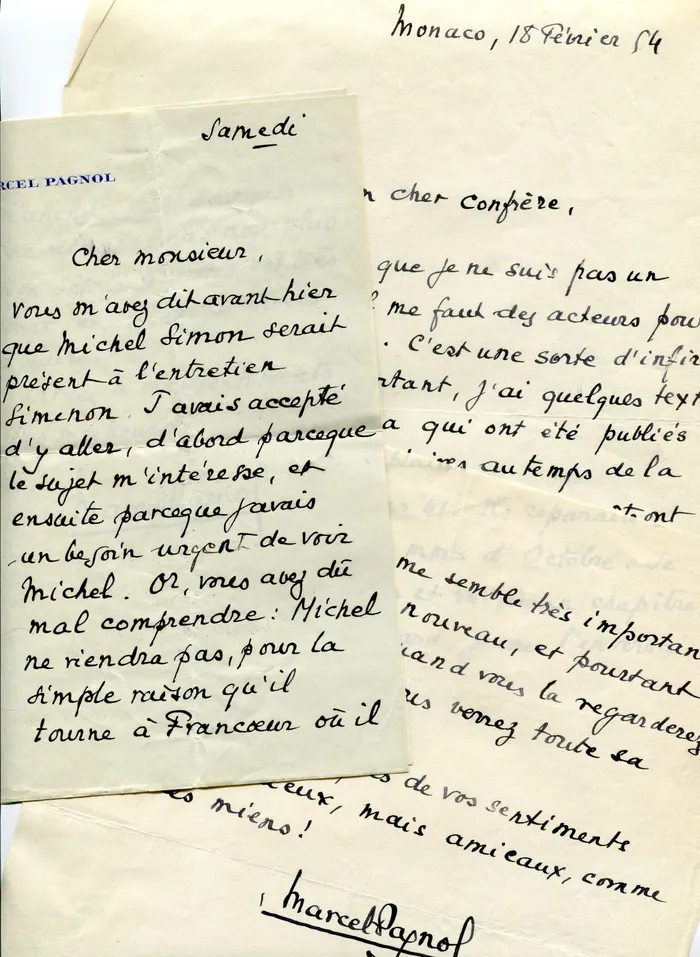 Samedi
RCEL PAGNOL
Cher monsieur,
vous m'avez dit avant hier
que Michel Simon serait
présent à l'entretien
Simenon. J'avais accepté
d'y aller, d'abord parceque
le sujet m'intéresse, et
ensuite parceque j'avais
un besoin urgent de voir
Michel. Or, vous avez dû
mal comprendre : Michel
ne viendra pas, pour la
simple raison qu'il
tourne à Francœur où il
Monaco, 18 Février 54
n cher confrère,
que je ne suis pas un
me faut des acteurs pou
. C'est une sorte d'infir
rtant, j'ai quelques text
a qui ont été publiés
au temps de la
ont
me semble très importan
nouveau, et pourtant
uand vous la regarderez
us verrez toute sa
de vos sentiments
ieux, mais amicaux, comme
es miens !
Marcel Pagnol